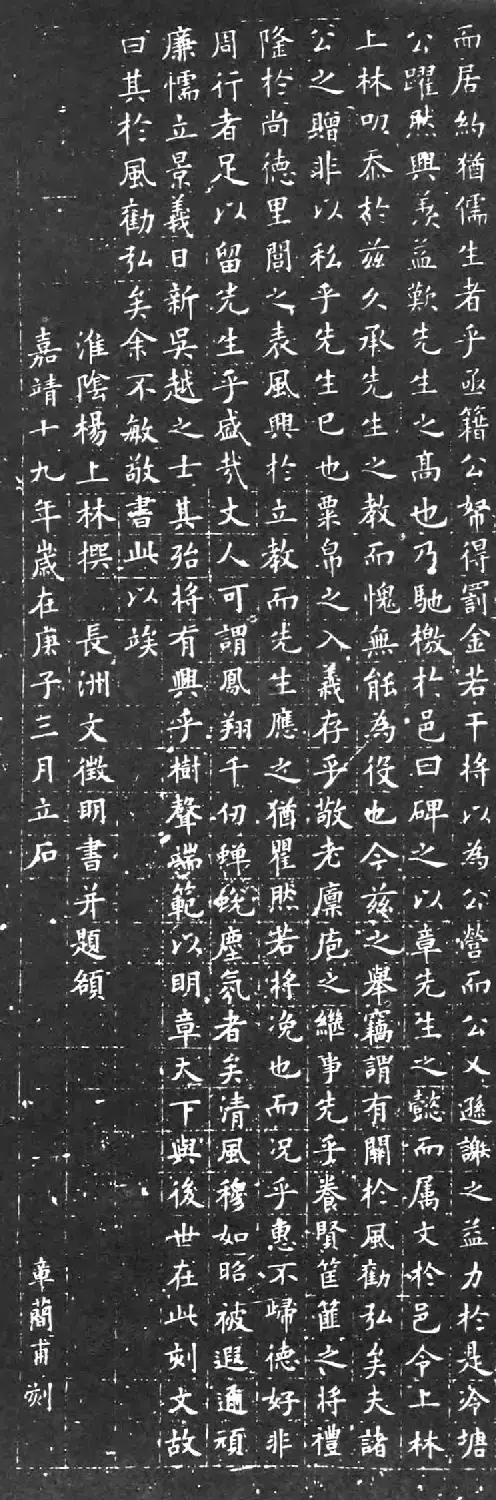 而居約猶儒生者乎亟籍公帑得罰金若干将以為公營而公又遜謝之益力於是泠塘
公躍然興羨益歎先生之髙也乃馳檄於邑曰碑之以章先生之懿而属文於邑令上林
上林叨忝於兹久承先生之教而愧無能為役也今兹之舉竊謂有關於風勸弘矣夫諸
公之贈非以私乎先生已也粟帛之入義存乎敬老廩庖之繼事先乎養賢筐篚之将禮
隆於尚德里閭之表風興於立教而先生應之猶瞿然若将浼也而况乎惠不歸德好非
周行者足以留先生乎盛哉丈人可謂鳳翔千仞蟬蛻塵氛者矣清風穆如昭被遐邇頑
廉懦立景義日新吳越之士其殆将有興乎樹聲端範以明章天下與後世在此刻文故
曰其於風勸弘矣余不敏敬書此以俟
淮陰楊上林撰 長洲文徵明書并題額
嘉靖十九年歲在庚子三月立石 章簡甫刻